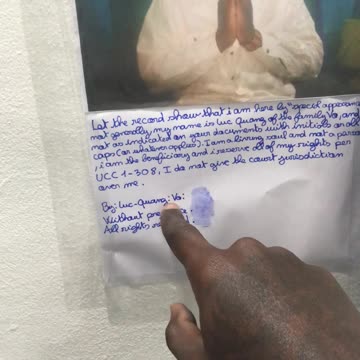 Let the record show that i am here by "special appearance
not generally my name is Luc Quang of the family Vo, and
not as indicated on your documents with initials on all
caps (or whatever applies). I am a living soul and not a person
i am the Beneficiary and i reserve all of my rights per
UCC 1-308, I do not give the court jurisdiction
over me.
By: Luc-Quang: Vo:
Without
All rights